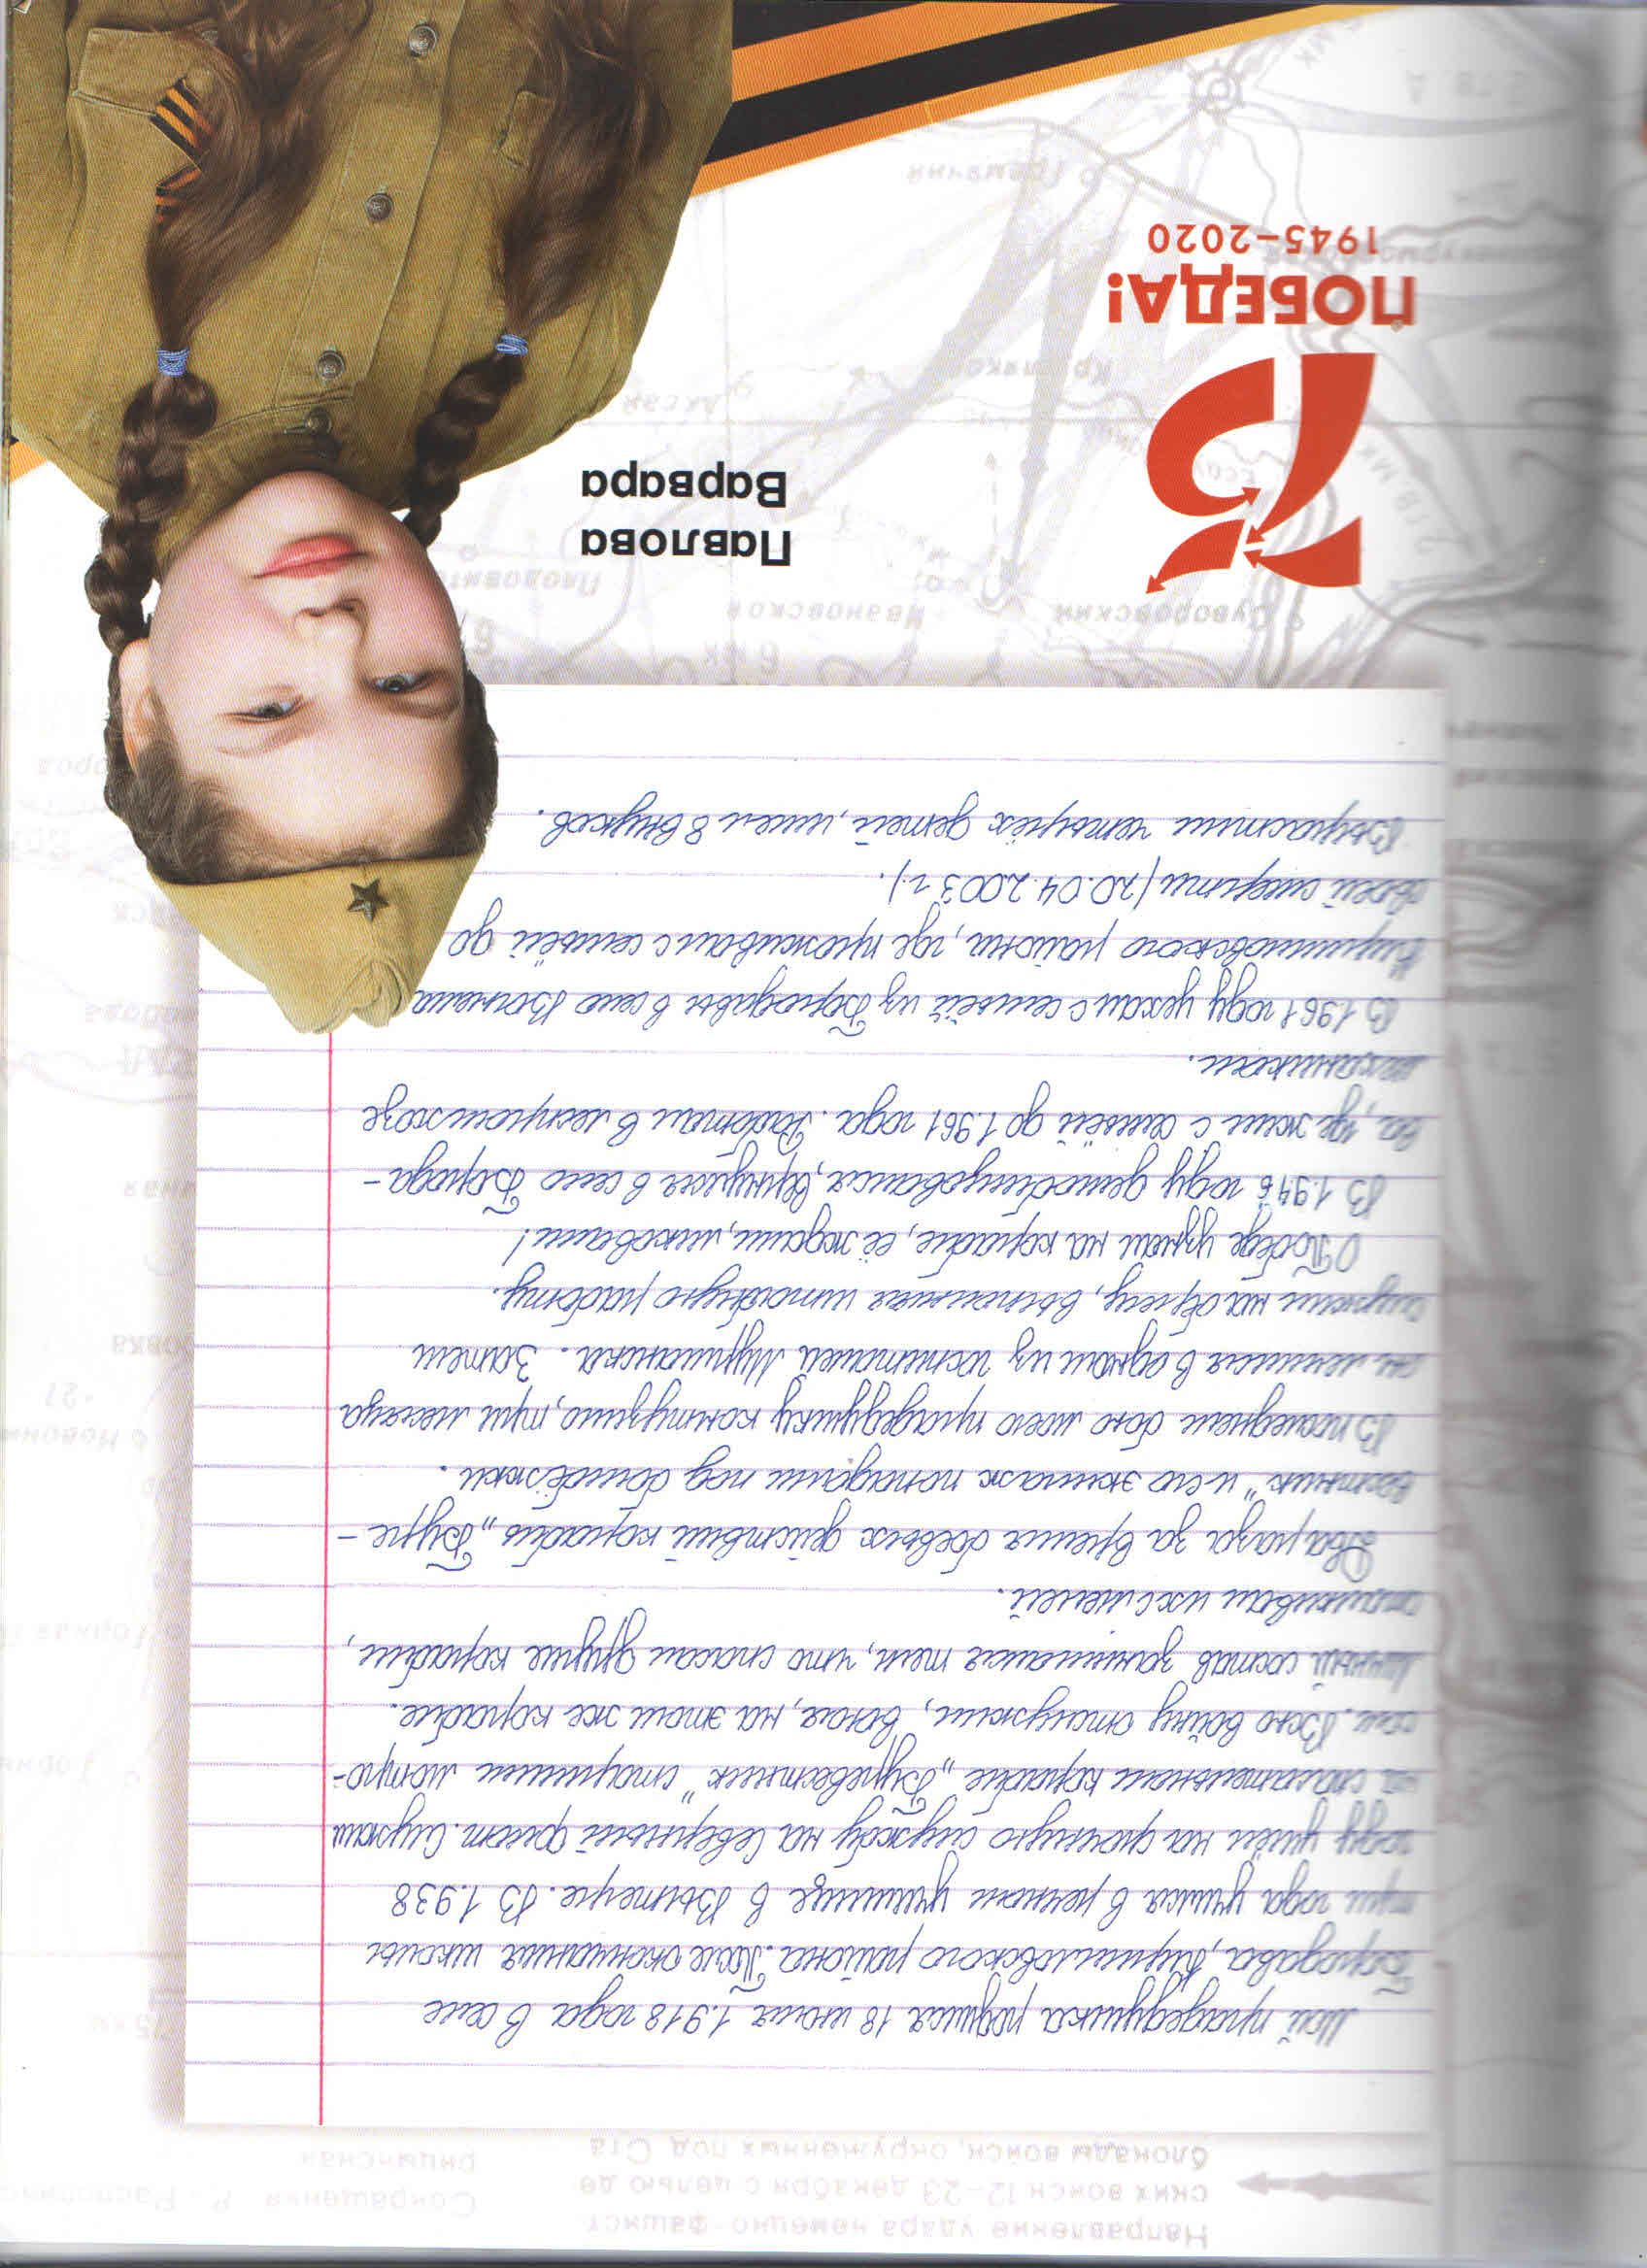 Направление удара немецко-фашист
ских войск 12–23 декабря с целью де
блокады войск, окруженных под Ста
Сокращения
Мой прадедушка родился 18 июля 1.918 года в селе
Бородава, Кирилловского района. После окончания школы
три года учился в речном училище в Вытегре. В 1.938
году ушёл на срочную службу на Северный флот. Служил
на спасательном корабле „Буревестник" старшим матро-
сом. Всю войну отслужил, воюя, на этом же корабле.
Личный состав занимался тем, что спасал другие корабли,
сталкивал их с мелей.
Два раза за время боевых действий корабль „Буре-
вестник" и его экипаж попадали под бомбёжки.
В последнем бою моего прадедушку контузило, три месяца
он лечился в одном из госпиталей Мурманска. Затем
служил на берегу, выполняя штабную работу.
О Победе узнал на корабле, её ждали, ликовали!
В 1.946 году демобилизовался, вернулся в село Борода-
ва, где жил с семьёй до 1.961 года. Работал в леспромхозе
механиком.
В 1961 году уехал с семьёй из Бородавы в село Вогнема
Кирилловского района, где проживал с семьёй до
своей смерти (20.04.2003 г.).
Вырастил четырёх детей, имел 8 внуков.
Суворовский
Ивановское
6 мк
Павлова
Варвара
75
Аксай
ПОБЕДА!
1945–2020
Гремячий